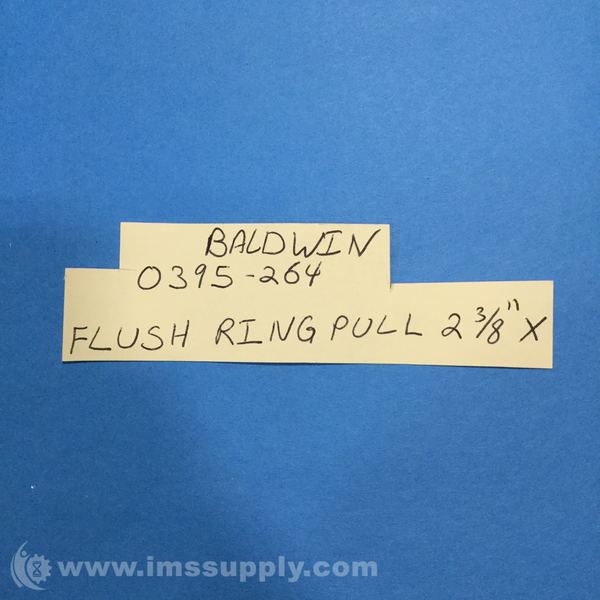 BALDWIN
0395-264
FLUSH RING PULL 2 3/8" X
www.imssupply.com